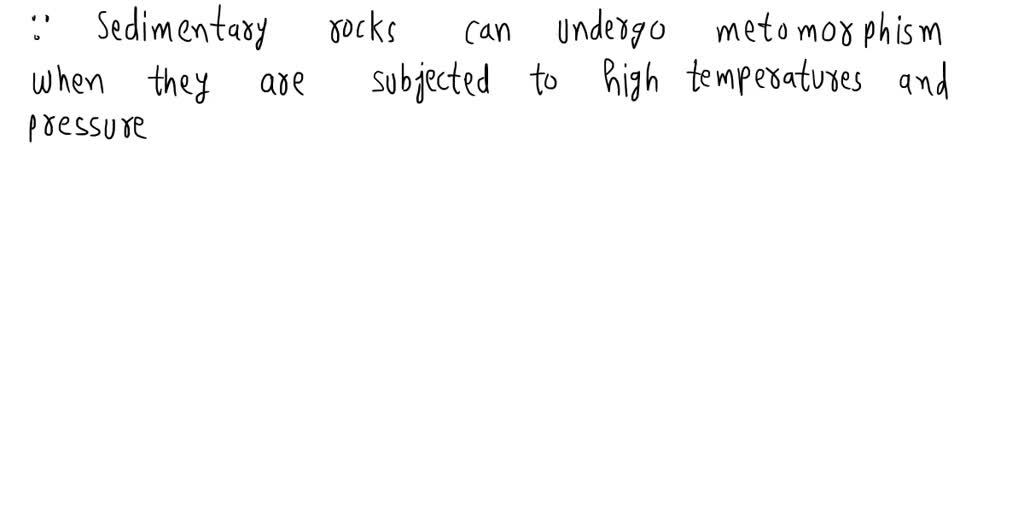 ∵ Sedimentary rocks can undergo metomorphism
when they are subjected to high temperatures and
pressure